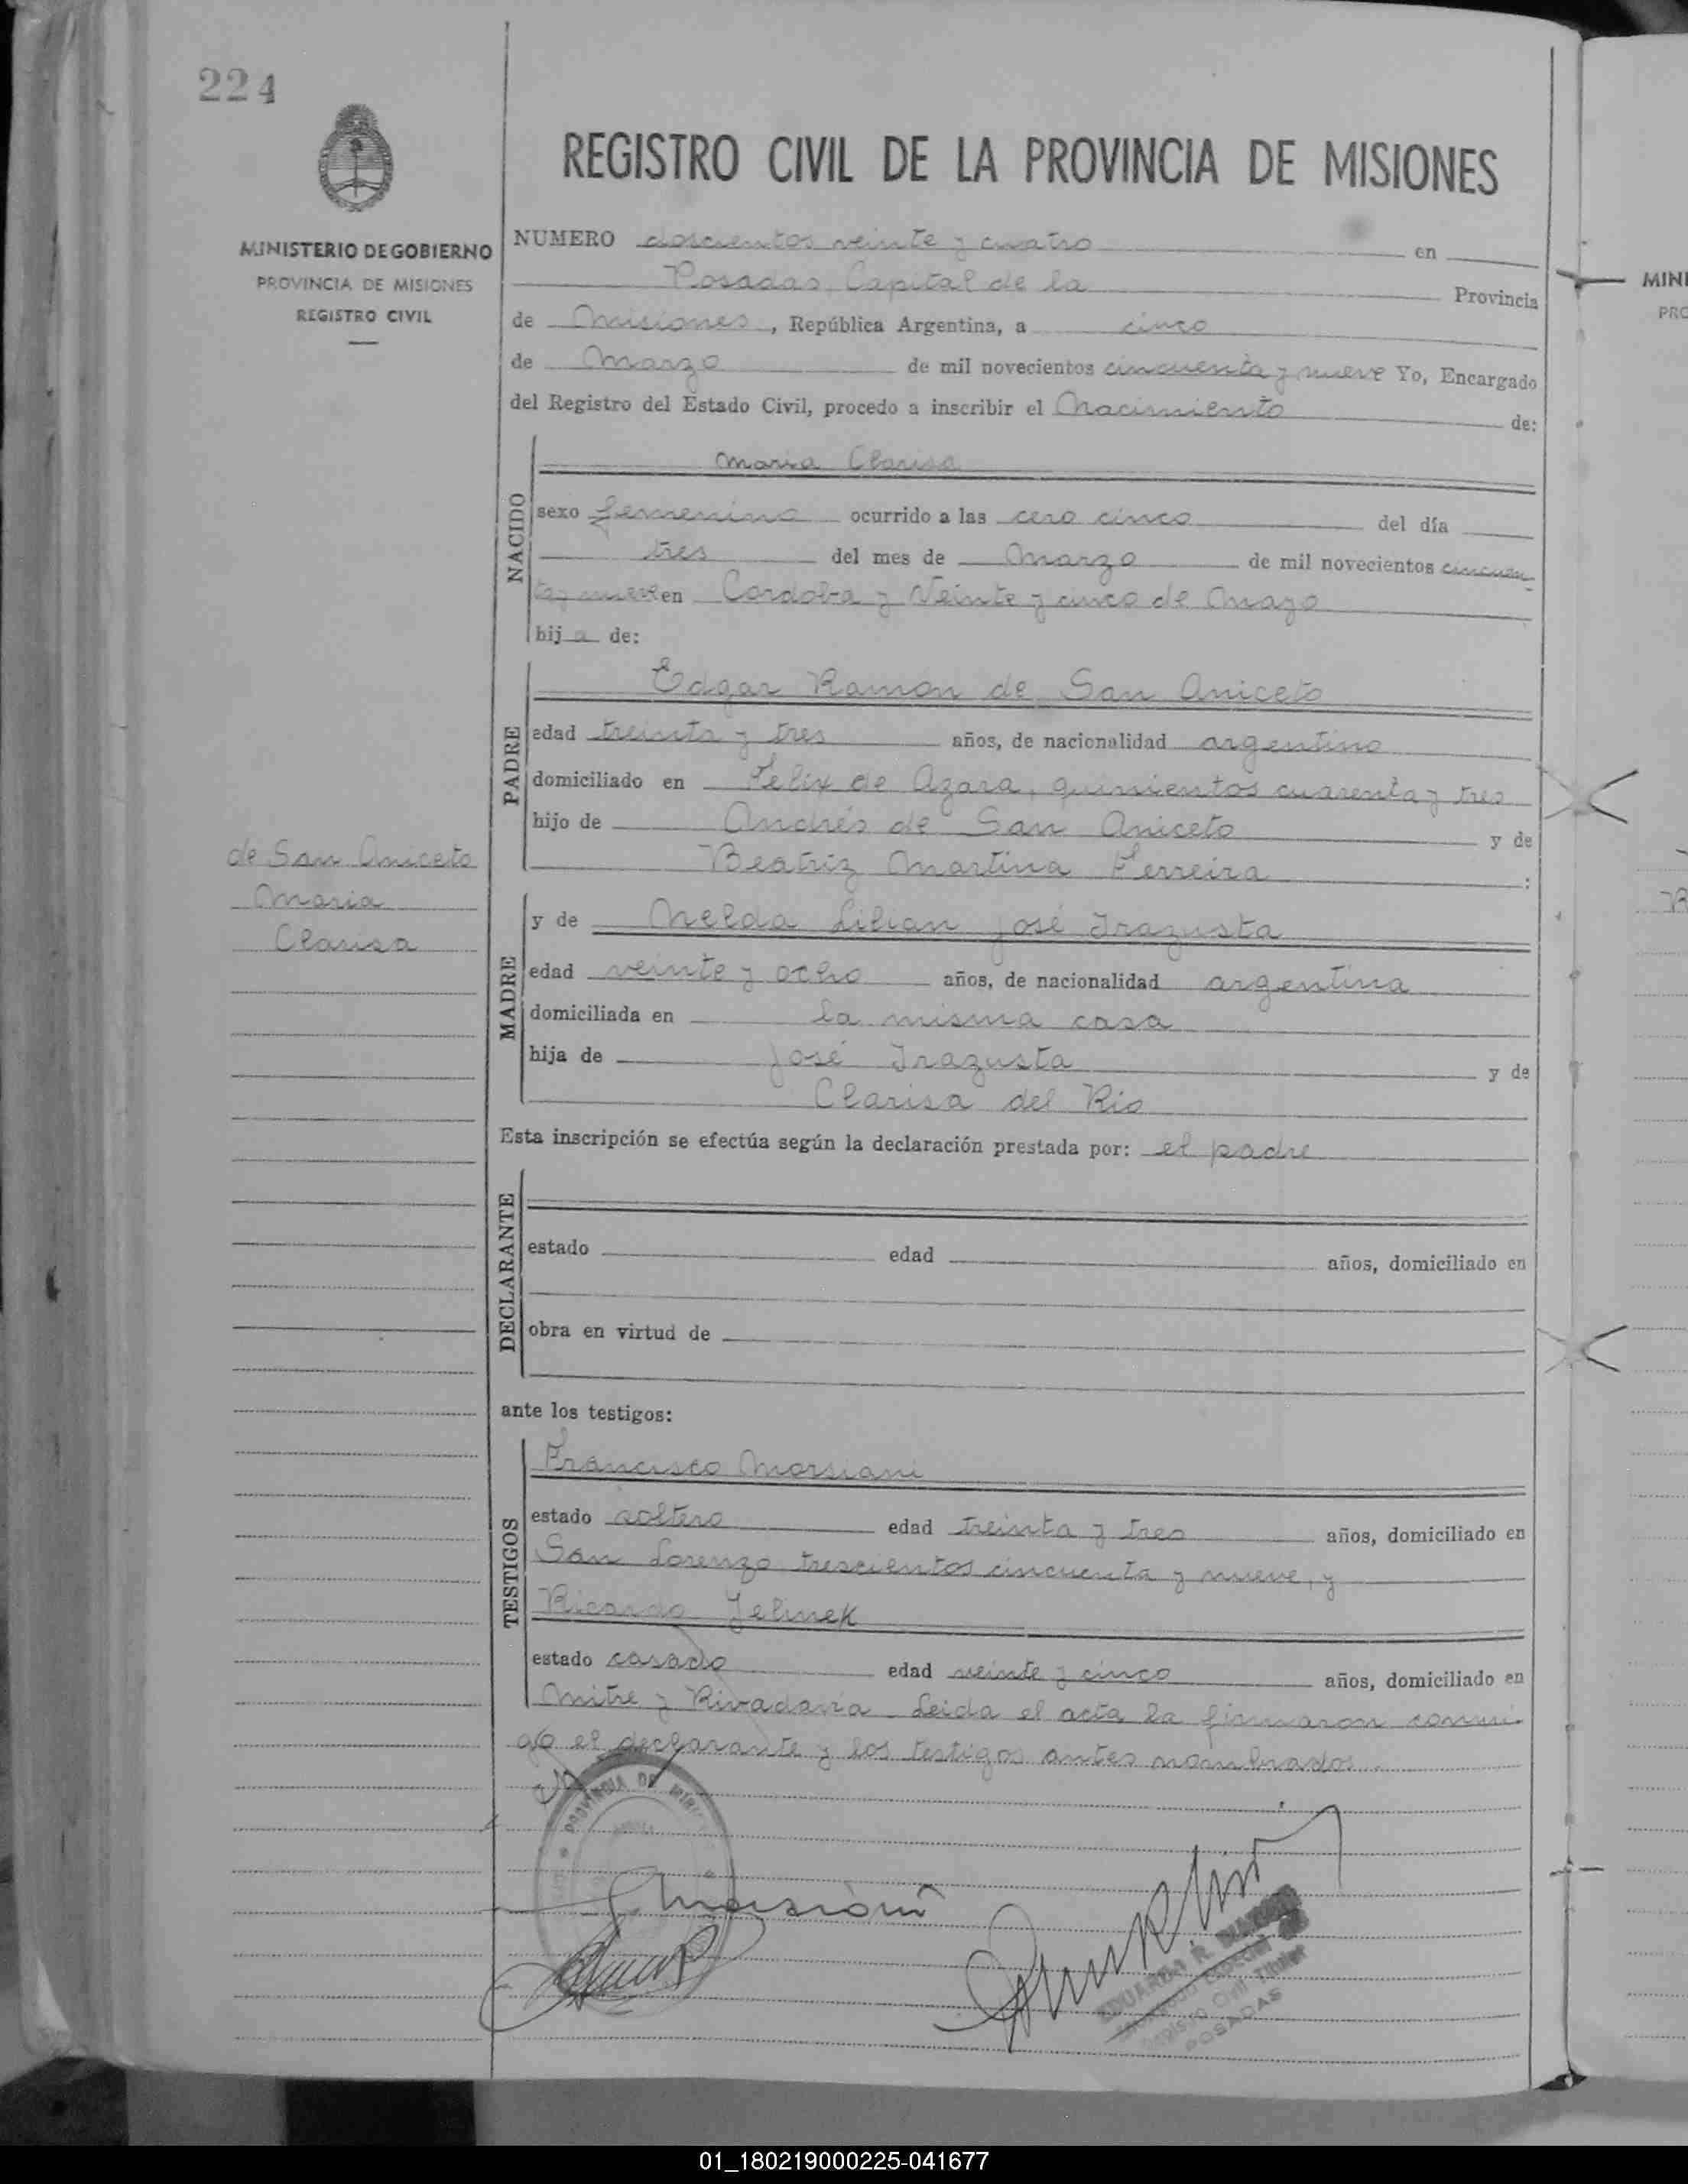 224
REGISTRO CIVIL DE LA PROVINCIA DE MISIONES
MINISTERIO DE GOBIERNO
PROVINCIA DE MISIONES
REGISTRO CIVIL
NUMERO doscientos veinte y cuatro en
Posadas, Capital de la Provincia
de Misiones, República Argentina, a cinco
de Marzo de mil novecientos cincuenta y nueve Yo, Encargado
del Registro del Estado Civil, procedo a inscribir el Nacimiento de:
NACIDO
Maria Clarisa
sexo femenino ocurrido a las cero cinco del día
tres del mes de Marzo de mil novecientos cincuen
ta y nueve en Cordoba y Veinte y cinco de Mayo
hija de:
PADRE
Edgar Ramon de San Aniceto
edad treinta y tres años, de nacionalidad argentino
domiciliado en Felix de Azara, quinientos cuarenta y tres
hijo de Andrés de San Aniceto y de
Beatriz Martina Ferreira :
de San Aniceto
Maria
Clarisa
MADRE
y de Nelda Lilian José Irazusta
edad veinte y ocho años, de nacionalidad argentina
domiciliada en la misma casa
hija de José Irazusta y de
Clarisa del Rio
Esta inscripción se efectúa según la declaración prestada por: el padre
DECLARANTE
estado edad años, domiciliado en
obra en virtud de
ante los testigos:
TESTIGOS
Francisco Morsiani
estado soltero edad treinta y tres años, domiciliado en
San Lorenzo trescientos cincuenta y nueve, y
Ricardo Jelinek
estado casado edad veinte y cinco años, domiciliado en
Mitre y Rivadavia. Leida el acta la firmaron conmi-
go el declarante y los testigos antes nombrados.
PROVINCIA DE
Morsiani
EDUARDO R.
Registro Civil Titular
POSADAS
MINI
PRO
01_180219000225-041677